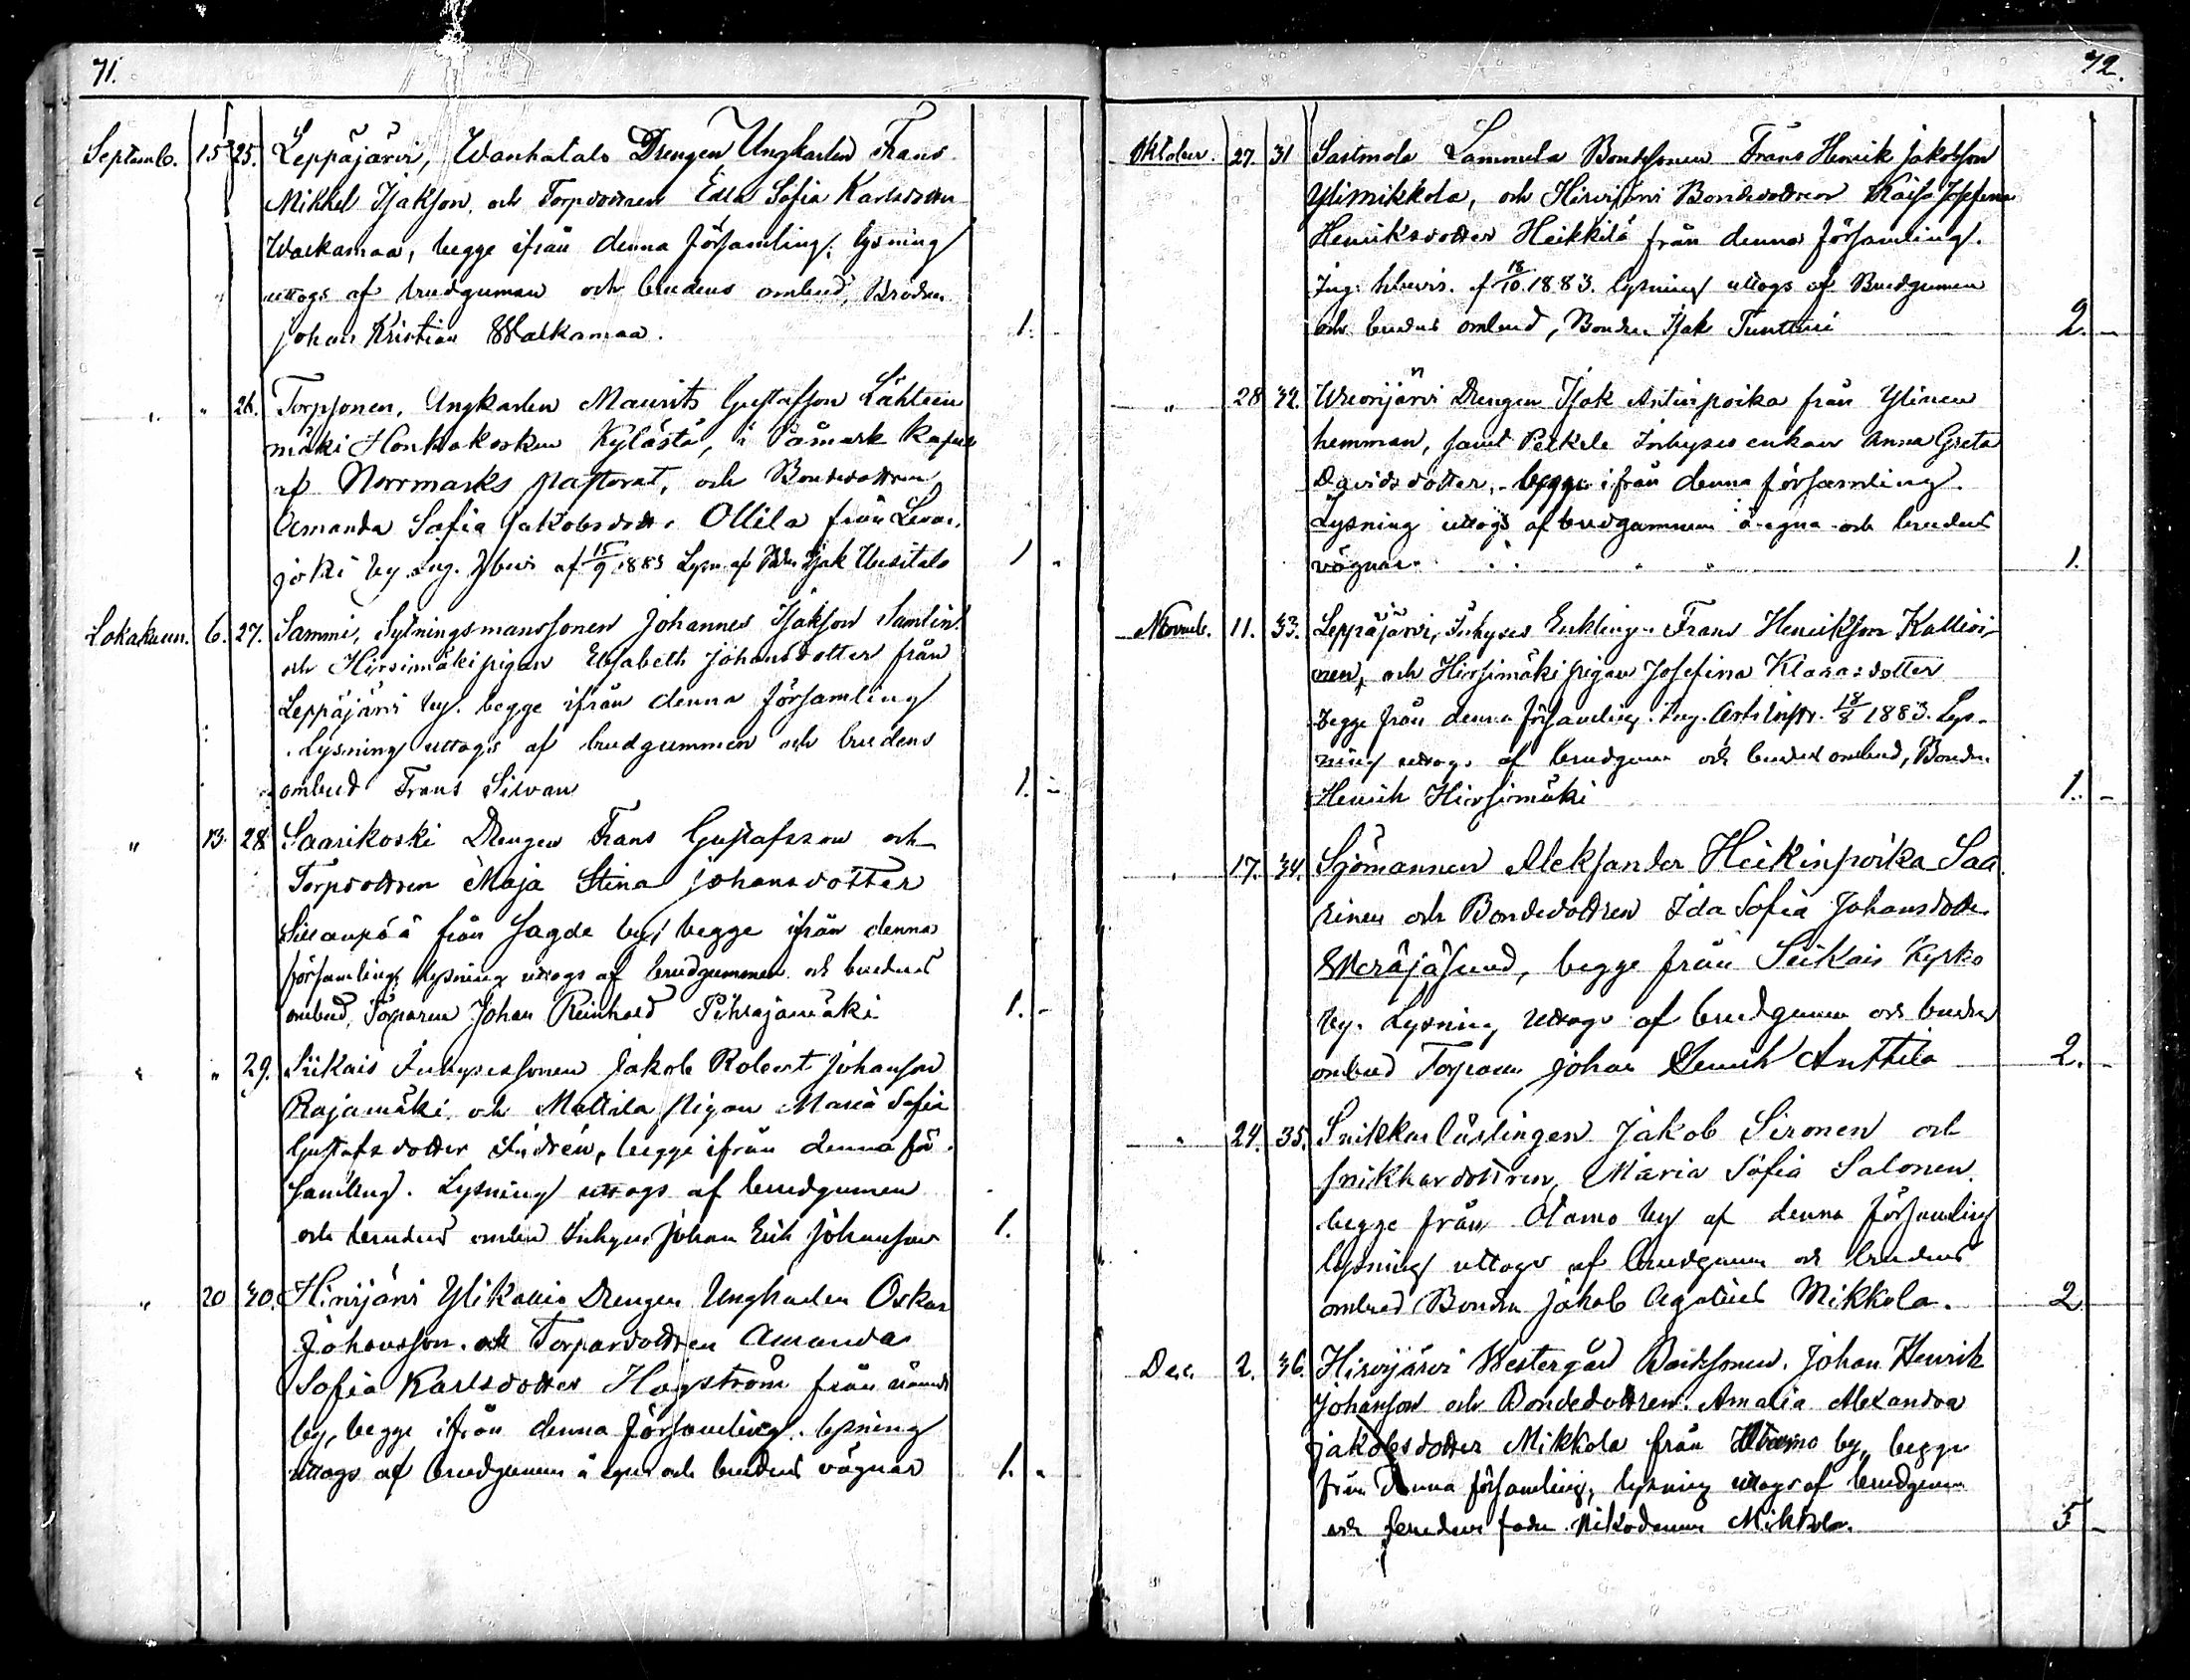 71.
Septemb. 15 25. Leppäjärvi, Wanhatalo Drengen Ungkarlen Frans
Mikkel Isakson, och Torpdottren Edla Sofia Karlsdotter
Walkamaa, begge ifrån denna församling, lysning
uttogs af brudgumen och brudens ombud, Brodren
Johan Kristian Walkamaa. 1. -
" " 26. Torpsonen, Ungkarlen Maurits Gustafson Lähteen
mäki Honkakosken Kylästä, i Påmark Kapell
af Norrmarks pastorat, och Bondedottren
Amanda Sofia Jakobsdott. Ollila från Leva
joki by. Ing. Hbevis af 15/9 1883 Lysn af Isak Uusitalo 1 "
Lokakuun. 6. 27. Sammi, Sytningsmanssonen Johannes Isakson Samlin
och Hirsimäki pigan Elisabeth Johansdotter från
Leppäjärvi by. begge ifrån denna församling
. Lysning uttogs af brudgummen och brudens
ombud Frans Silvan 1. -
" 13. 28. Saarikoski Drengen Frans Gustafsson och
Torpdottren Maja Stina Johansdotter
Sillanpää från Sagde by, begge ifrån denna
församling, lysning uttogs af brudgummen och brudens
ombud, Torparen Johan Reinhold Pihlajamäki 1. -
" " 29. Siikais Inhysessonen Jakob Robert Johanson
Rajamäki och Mattila pigan Maria Sofia
Gustafsdotter Indrén, begge ifrån denna för
samling. Lysning uttogs af brudgumen
och brudens ombud Inhys. Johan Erik Johanson 1.
" 20 30. Hirvijärvi Ylikallio Drengen Ungkarlen Oskar
Johansson. och Torpardottren Amanda
Sofia Karlsdotter Hagström från nämnde
by, begge ifrån denna församling. lysning
uttogs af brudgumen å egna och brudens vägnar 1. "
72.
Oktober. 27. 31 Sastmola Lammela Bondsonen Frans Henrik Jakobsson
Ylimikkola, och Hirvijärvi Bondedottren Kaisa Josefina
Henriksdotter Heikkilä från denna församling.
Ing. hbevis. af 18/10 1883. lysning uttogs af Brudgumen
och brudens ombud, Bonden Isak Tunturi 2. -
" 28 32. Wuorijärvi Drengen Isak Antinpoika från Ylinen
hemman, samt Perkele Inhyses enkan Anna Greta
Davidsdotter, begge ifrån denna församling.
Lysning uttogs af brudgummen å egna och brudens
vägnar. 1.
Novemb. 11. 33. Leppäjärvi, Inhyses Enklingen Frans Henrikson Kallioi-
nen, och Hirsimäki pigan Josefina Klarasdotter
begge från denna församling. Ing. 18/8 1883. Lys-
ning uttogs af brudgum och brudens ombud, Bonden
Henrik Hirsimäki 1. -
" 17. 34. Sjömannen Aleksander Heikinpoika Saa
rinen och Bondedottren Ida Sofia Johansdotter
Meräjäsund, begge från Siikais Kyrko
by. Lysning uttogs af brudgumen och brudens
ombud Torparen Johan Henrik Anttila 2. -
" 24. 35. Snikkarlärlingen Jakob Sironen och
snikkardottren, Maria Sofia Salonen
begge från Otamo by af denna församling
lysning uttogs af brudgumen och brudens
ombud Bonden Jakob Agatius Mikkola. 2
Dec. 2. 36. Hirvijärvi Westergård Bondsonen. Johan Henrik
Johanson och Bondedottren. Amalia Alexandra
Jakobsdotter Mikkola från Otamo by, begge
från denna församling, lysning uttogs af brudgumen
och brudens fader Nikodemus Mikkola. 5 -